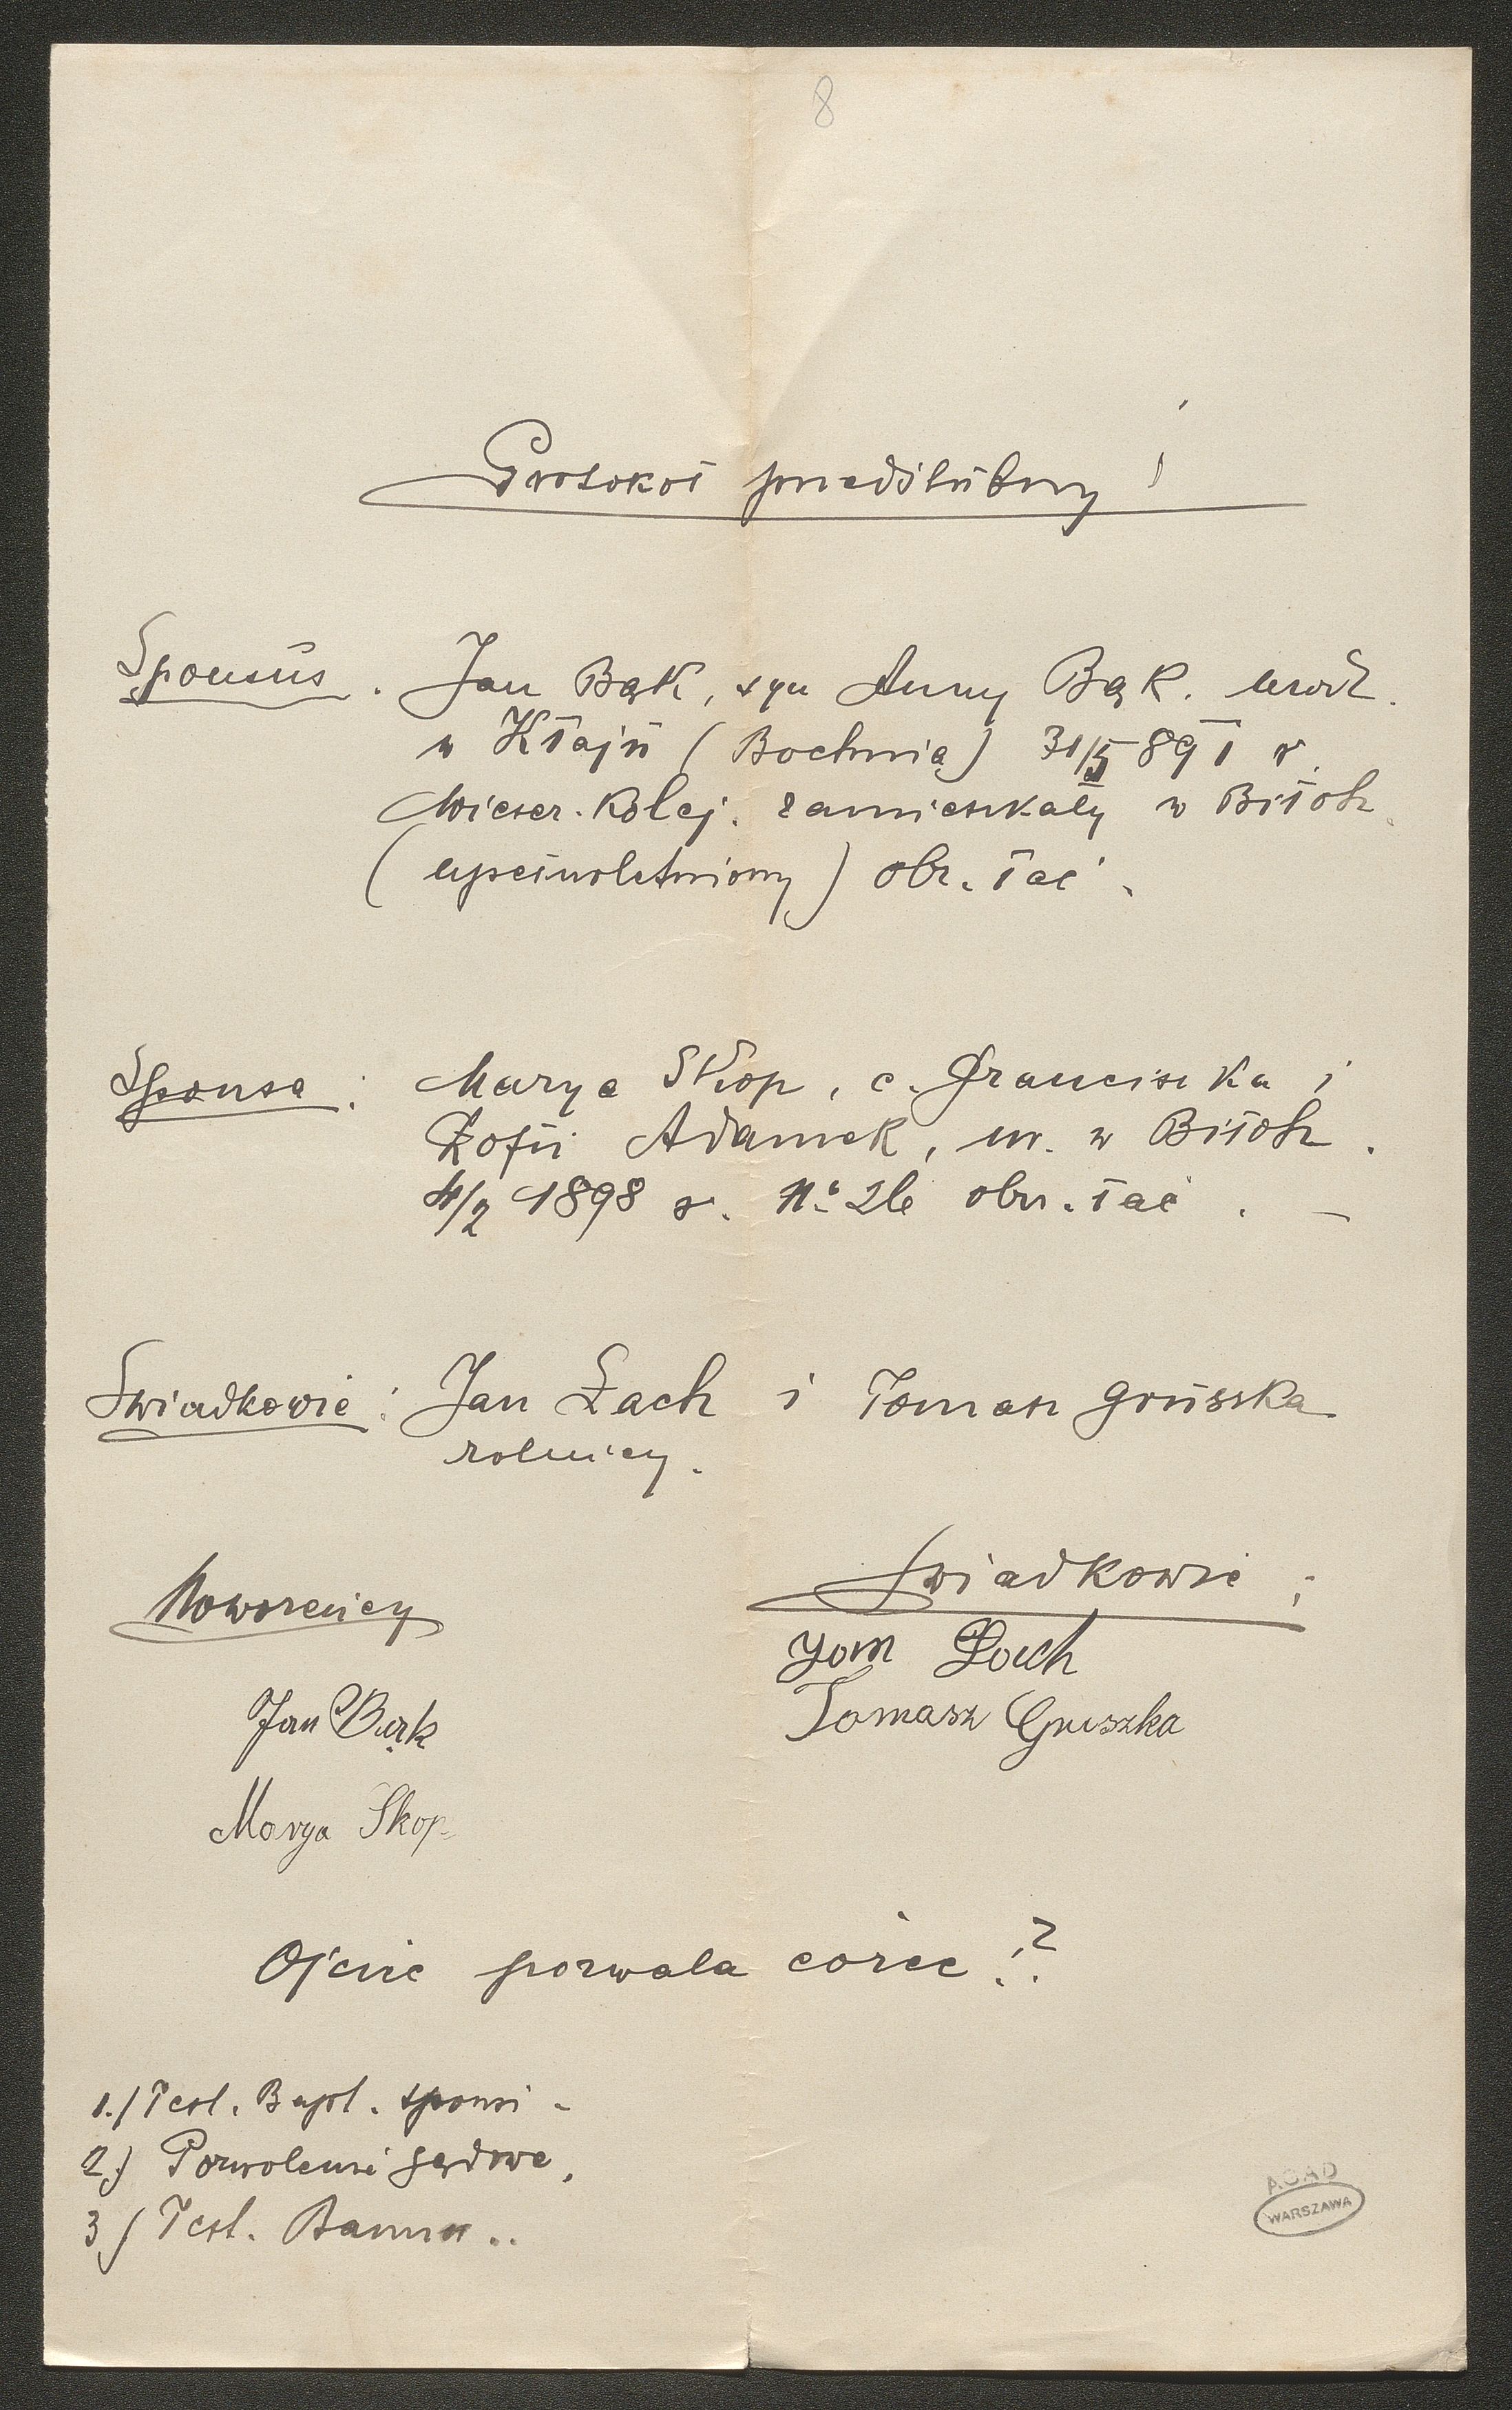 8
Protokół przedślubny!
Sponsus. Jan Bąk, syn Anny Bąk. urodz.
w Kłaju (Bochnia) 31/5 891 r.
kolej. zamieszkały w Biłoh.
(upełnoletniony) obr. łać.
Sponsa: Marya Skop, c. Franciszka i
Zofii Adamek, ur. w Biłoh.
4/2 1898 r. No 26 obrz. łać. —
Świadkowie: Jan Łach i Tomasz Gruszka
rolnicy.
Nowożeńcy
Świadkowie:
Łach
Jan Bąk
Tomasz Gruszka
Marya Skop
Ojciec pozwala córce!?
1.) Test. Bapt. sponsi -
2.) Pozwoleni sądowe.
3) Test. Bannu..
AGAD
WARSZAWA